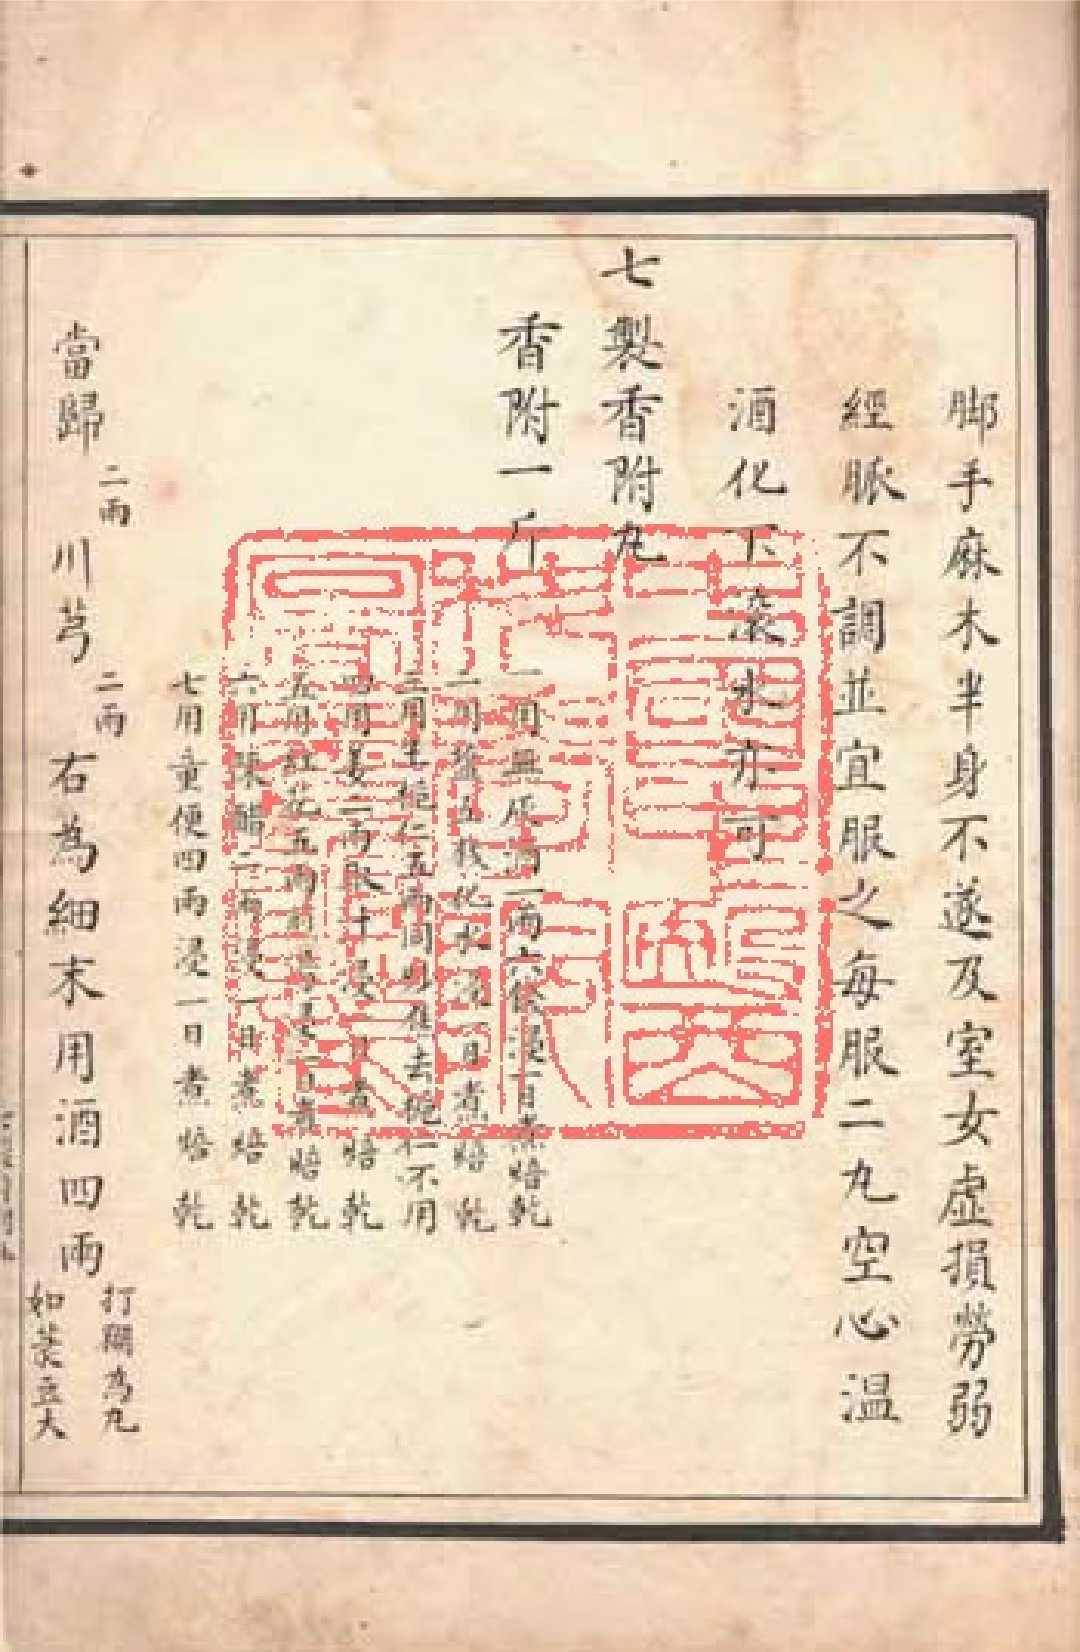 脚手麻木半身不遂及室女虛損勞弱
經脈不調並宜服之每服二丸空心温
酒化下滚水亦可
七製香附丸
香附一斤
一用無灰酒一兩六錢浸一日煮焙乾
二用鹽五錢化水浸一日煮焙乾
三用
仁五兩同
去
仁不用
四用姜二兩取汁浸一日煮焙乾
五用紅花五兩
浸一日煮焙乾
六用陳醋二兩浸一日煮焙乾
七用童便四兩浸一日煮焙乾
當歸二兩川芎二兩右為細末用酒四兩打糊為丸
如
豆大